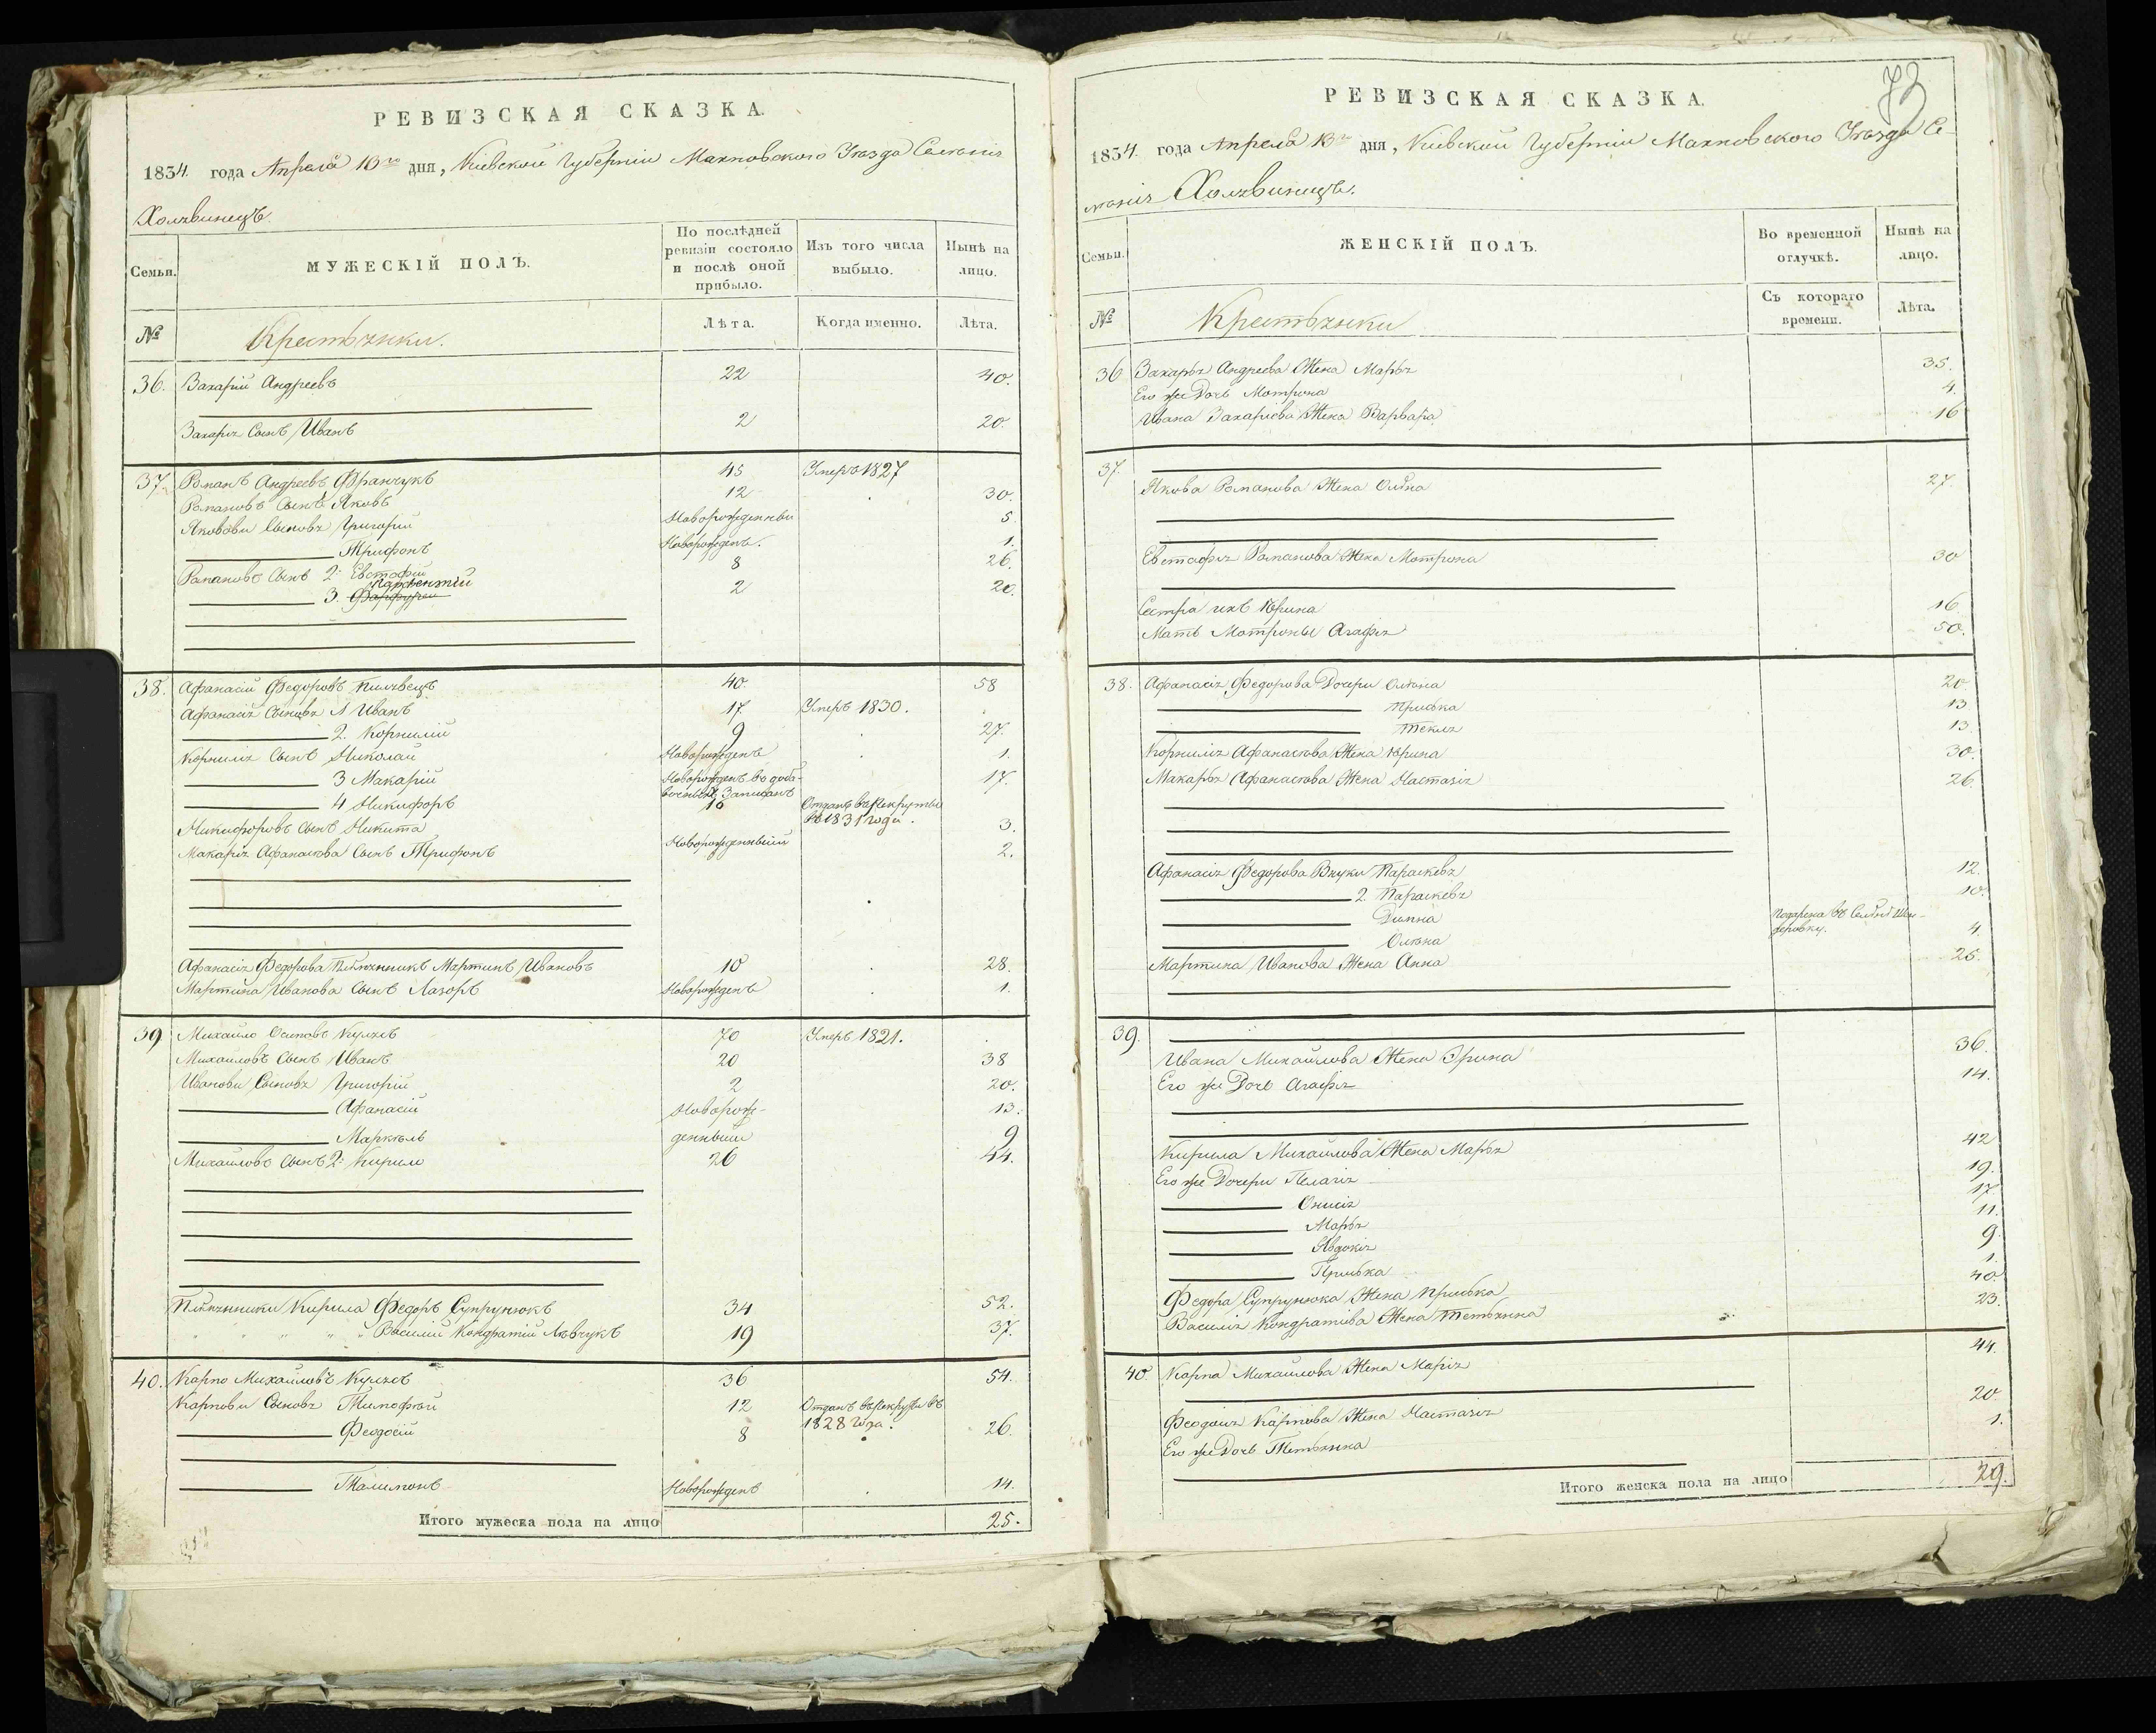 РЕВИЗСКАЯ СКАЗКА.
1834. года Апреля 10го дня, Киевской Губернии Махновского Уезда Селения
Холявинецъ.
Семьи.
МУЖЕСКІЙ ПОЛЪ.
По послѣдней ревизіи состояло и послѣ оной прибыло.
Изъ того числа выбыло.
Нынѣ на лицо.
№
Крестьянки.
Лѣта.
Когда именно.
Лѣта.
36. Захарій Андреевъ 22 40.
Захария Сынъ Иванъ 2 20.
37. Романъ Андреевъ Франчукъ 45 Умеръ 1827
Романовъ Сынъ Яковъ 12 30.
Яковови Сыновя Григорій Новорожденныи 5.
Трифонъ Новорожденъ. 1.
Романовъ Сынъ 2: Евстафій 8 26.
Парфентій
3. 2 20.
38. Афанасій Федоровъ Пилявецъ 40. 58
Афанасія Сыновя 1 Иванъ 17 Умеръ 1830.
2. Корнилій 9 27.
Корнилія Сынъ Николай Новорожденъ 1.
3 Макарій Новорожденъ во доба- 17.
4 Никифоръ 10 Отданъ въ Рекруты
Никифоровъ Сынъ Никита въ 1831 года. 3.
Макарія Афанасіова Сынъ Трифонъ Новорожденныій 2.
Афанасія Федорова Племянникъ Мартинъ Ивановъ 10 28.
Мартина Иванова Сынъ Лазоръ Новорожденъ 1.
39 Михайло Осиповъ 70 Умеръ 1821.
Михаиловъ Сынъ Иванъ 20 38
Иванови Сыновя Григорій 2 20.
Афанасій Новорож- 13.
Маркель денныи 9
Михаиловъ Сынъ 2: Кирило 26 44.
Племянники Кирила Федоръ Супрунюкъ 34 52.
Василій Кондратій Левчукъ 19 37.
40. Карпо Михаиловъ 36 54.
Карпови Сыновя Тимофтей 12 Отданъ въ Рекруты въ
1828 Года.
Феодосій 8 26.
Талимонъ Новорожденъ 14.
Итого мужеска пола на лицо 25.
73
РЕВИЗСКАЯ СКАЗКА.
1834. года Апреля 10го дня, Киевской Губернии Махновского Уезда Се-
ления Холявинецъ.
Семьи.
ЖЕНСКІЙ ПОЛЪ.
Во временной отлучкѣ.
Нынѣ на лицо.
№
Крестьянки
Съ котораго времени.
Лѣта.
36 Захарія Андреева Жена Марья 35.
Его же Дочь Мотрона 4.
Ивана Захаріева Жена Варвара 16
37.
Якова Романова Жена Олена 27.
Евстафія Романова Жена Мотрона 30
Сестра ихъ Юрина 16.
Мать Мотроны Агафія 50.
38. Афанасія Федорова Дочери Олена 20
Приська 13
Текля 13.
Корнилія Афанасіова Жена Юрина 30.
Макарья Афанасіова Жена Настазія 26.
Афанасія Федорова Внуки Параскевя 12.
2. Параскевя 10.
Олена 4.
Мартина Иванова Жена Анна 25.
39.
Ивана Михаилова Жена Орина 36.
Его же Дочь Агафія 14.
Кирила Михаилова Жена Марья 42
Его же Дочери Пелагія 19.
Онисія 17.
Марья 11.
Явдокія 9.
Приська 1.
Федора Супрунюка Жена Приська 40.
Василія Кондратіева Жена Тетьянна 23.
40. Карпа Михаилова Жена Марія 44.
Феодосія Карпова Жена Настазія 20.
Его же Дочь Тетьянна 1.
Итого женска пола на лицо 29.